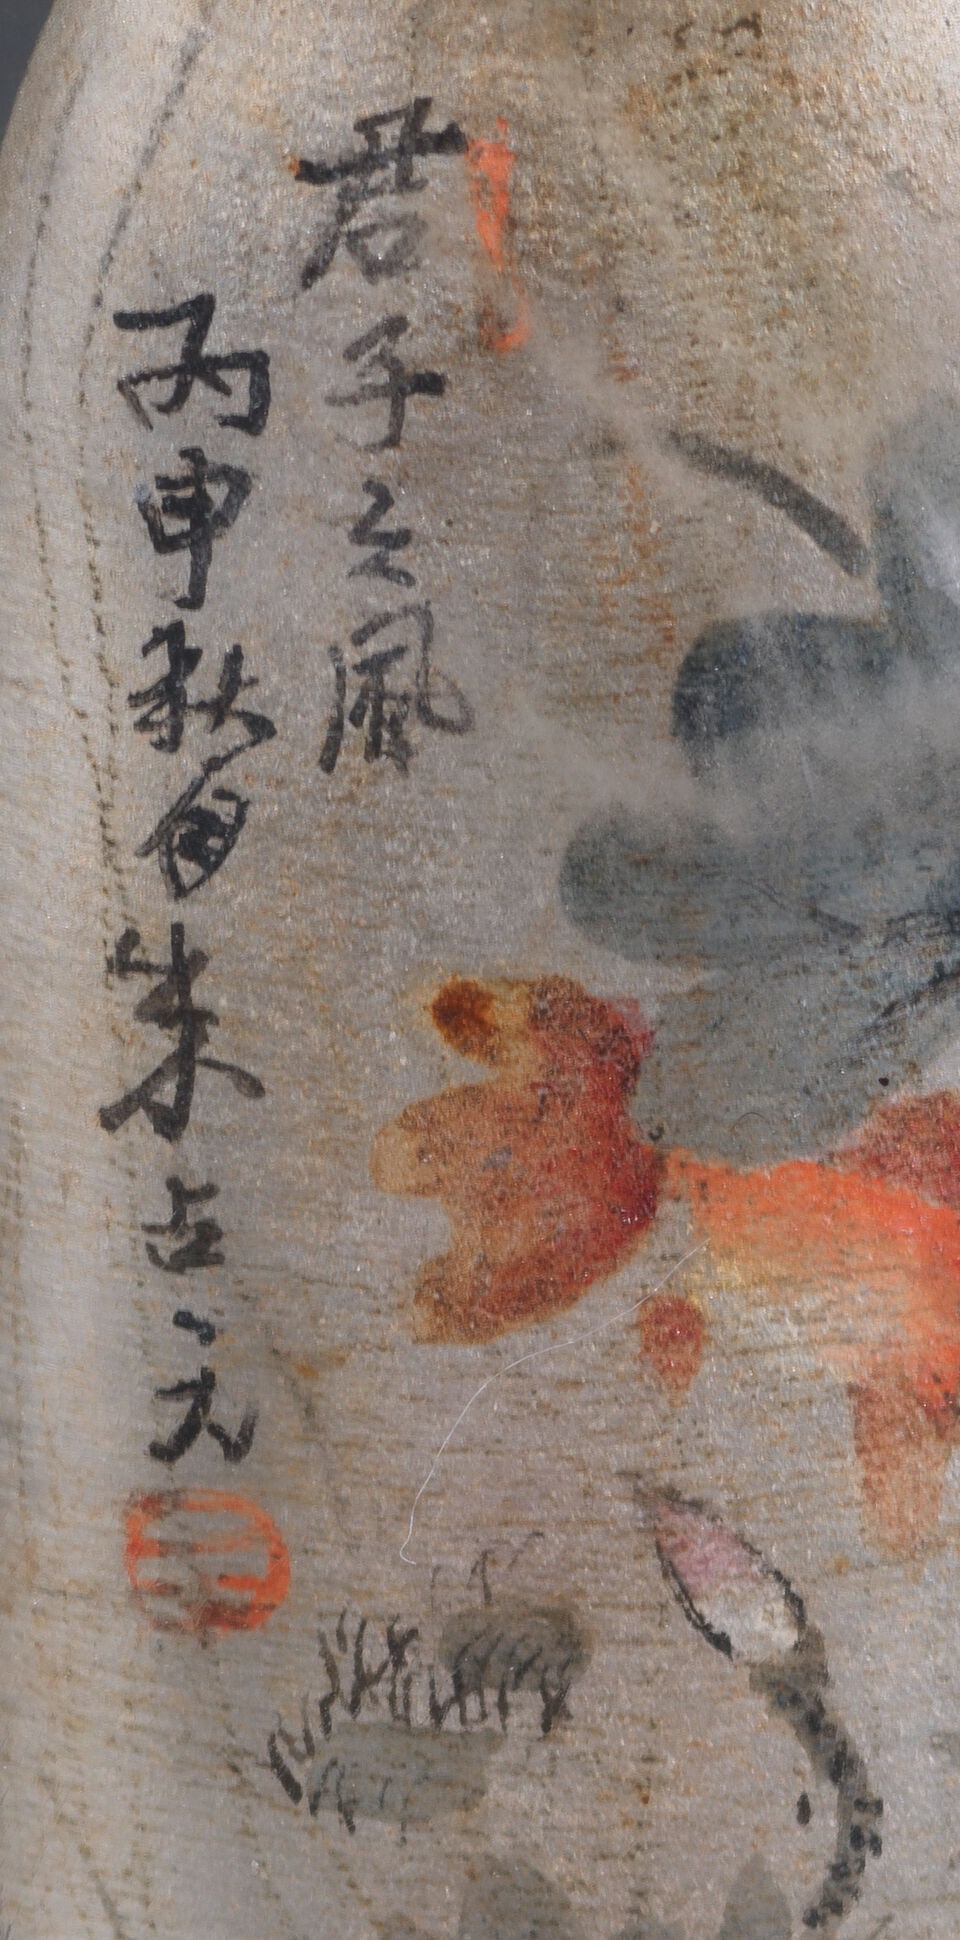 君子之風
丙申秋月朱占元